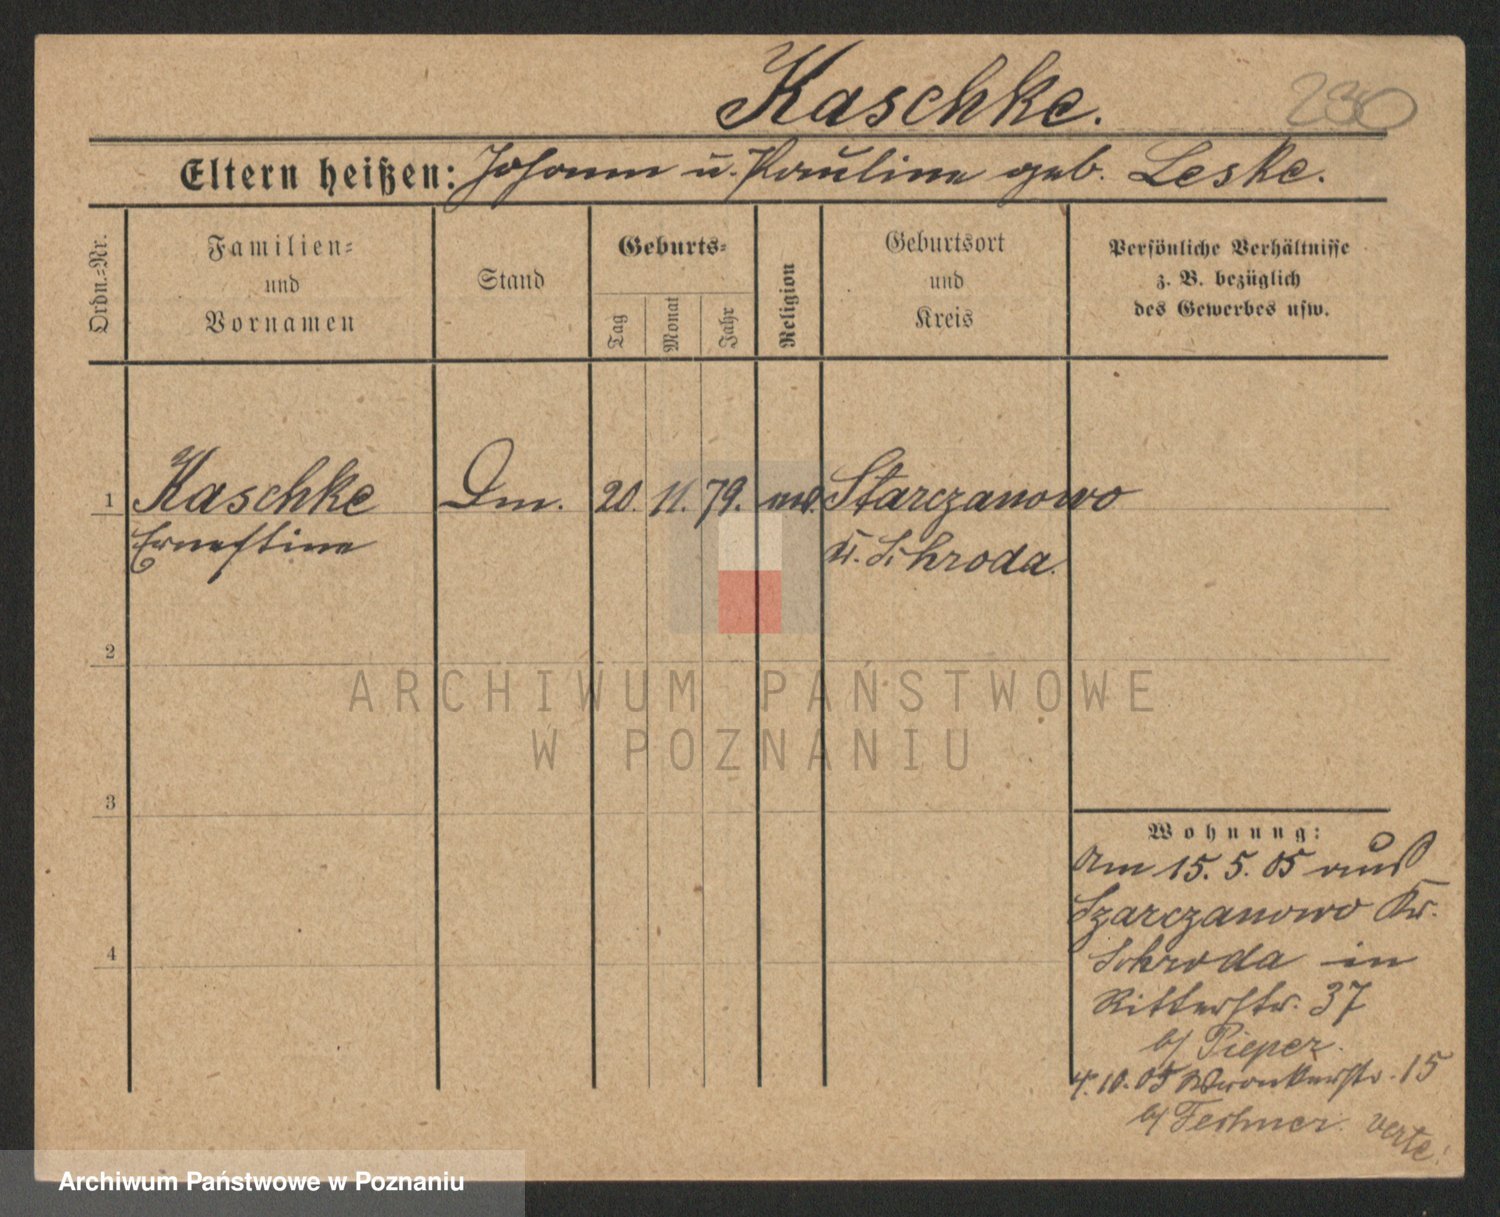 Kaschke.
230
Eltern heißen: Johann u. Pauline geb. Leske.
Ordn.=Nr.
Familien=
und
Vornamen
Stand
Geburts=
Tag
Monat
Jahr
Religion
Geburtsort
und
Kreis
Persönliche Verhältnisse
z. B. bezüglich
des Gewerbes usw.
1 Kaschke Dm. 20. 11. 79. Starczanowo
Ernestine Kr. Schroda.
2
3
4
Wohnung:
Am 15. 5. 05 aus
Szarczanowo Kr.
Schroda in
Ritterstr. 37
b/ Pieper.
4. 10. 05 Wronkerstr. 15
b/ Fechner. verte!
ARCHIWUM PAŃSTWOWE
W POZNANIU
Archiwum Państwowe w Poznaniu